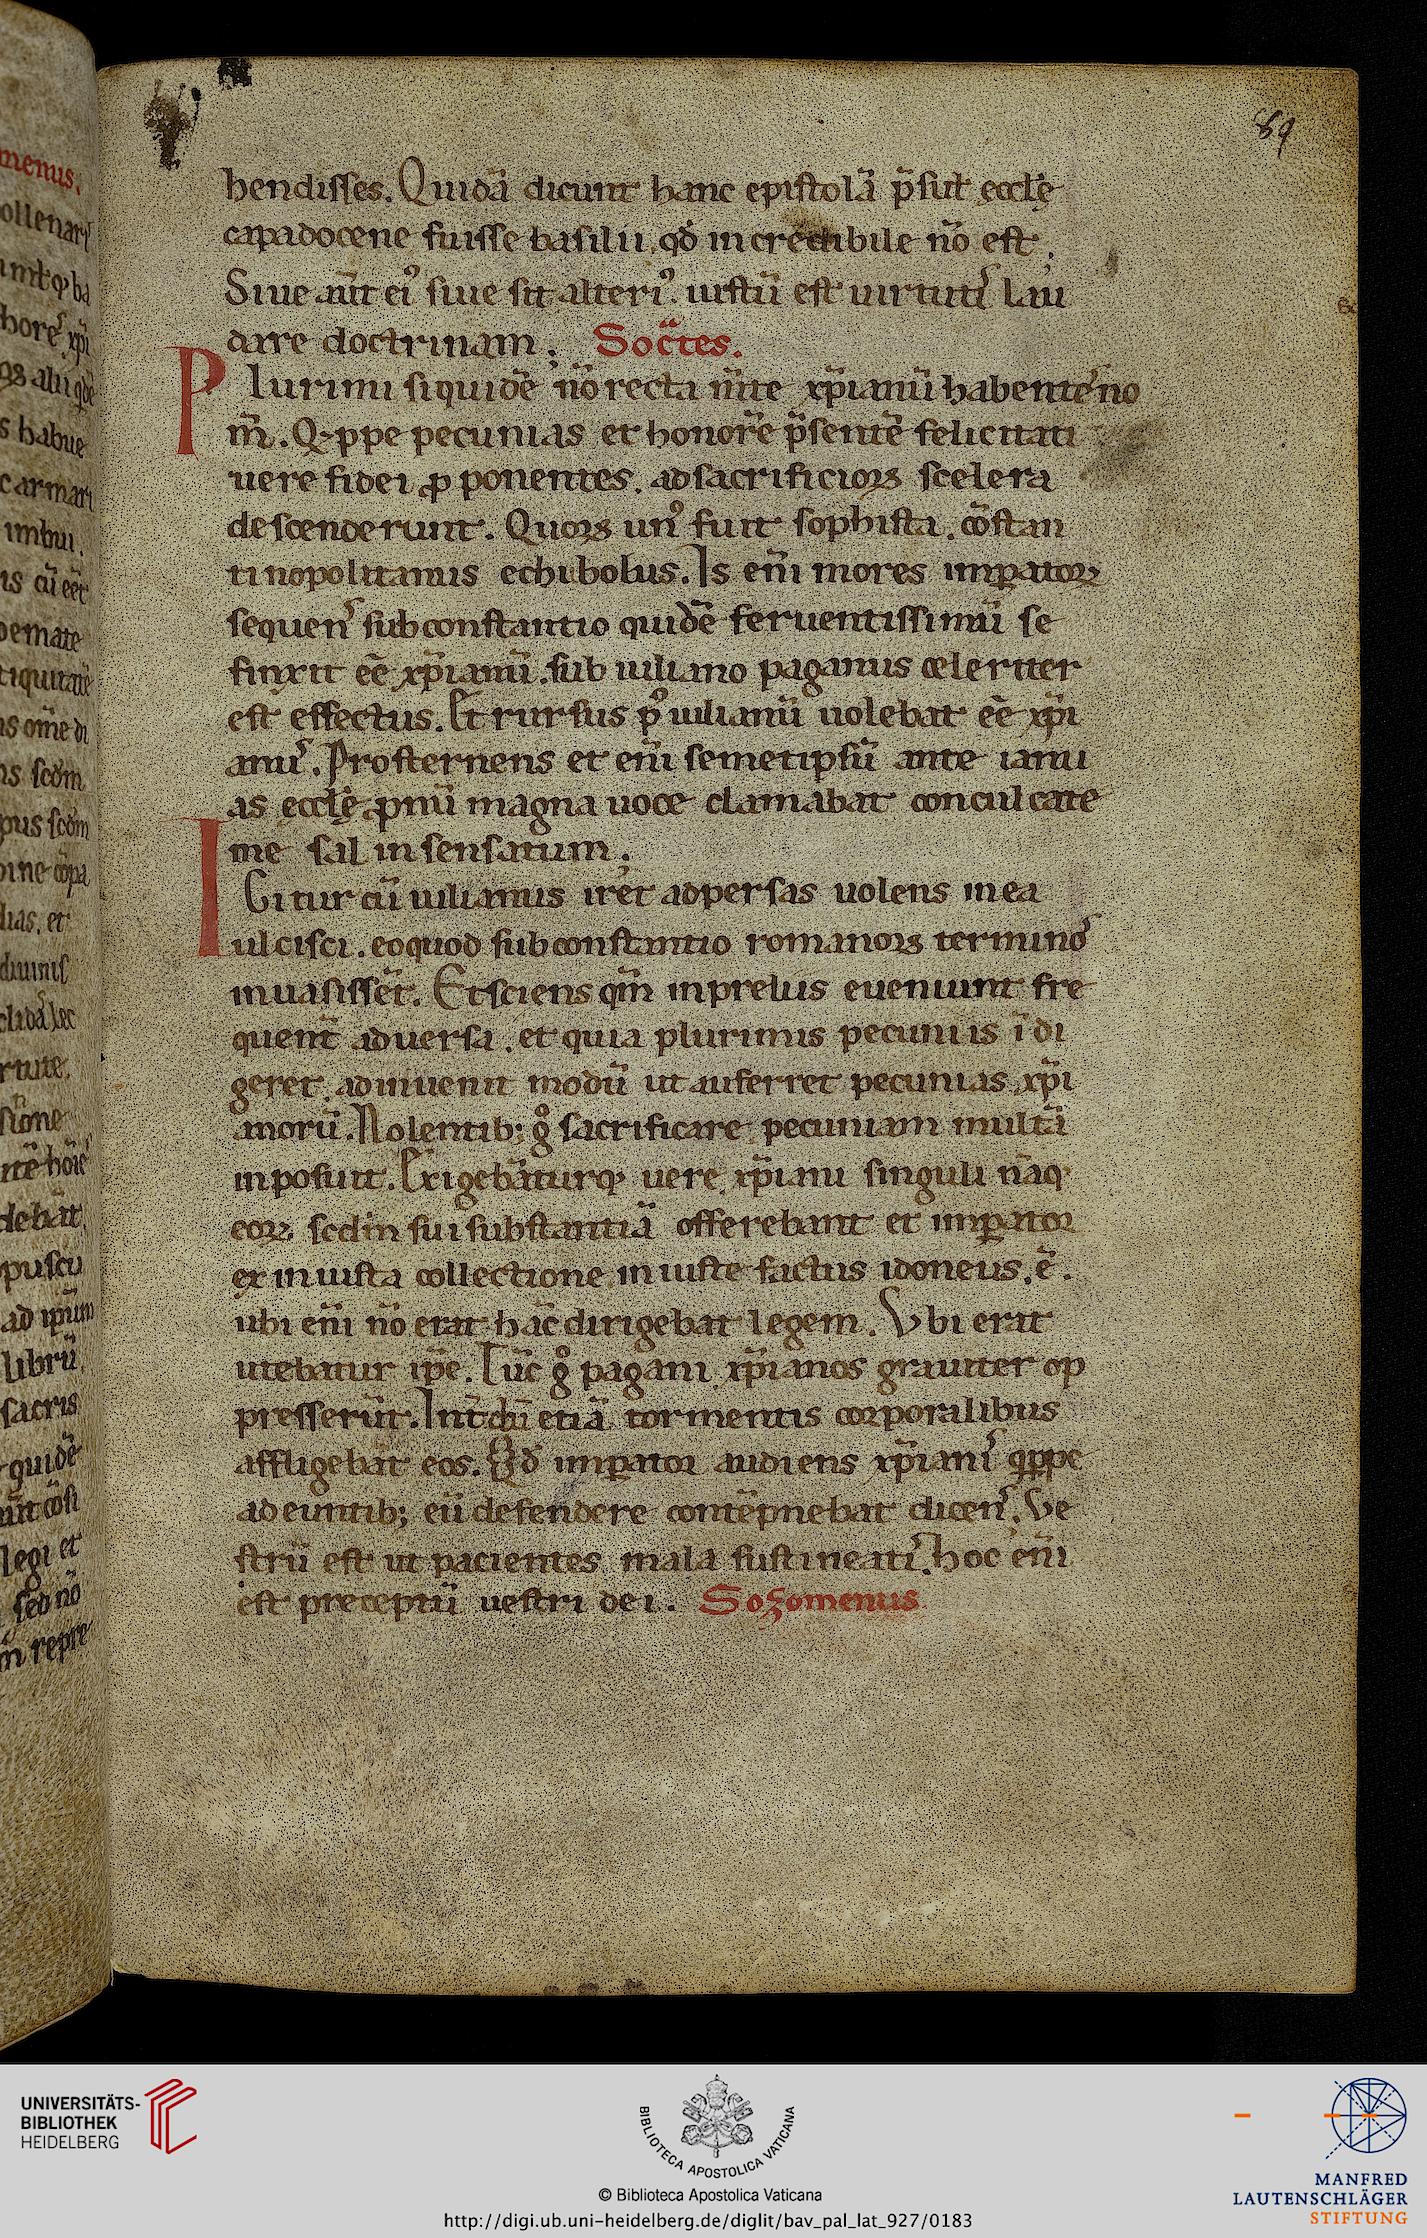 89
hendisses. Quidā dicunt hanc epistolā p̄sul̄ eccl̄ę
capadocene fuisse basilii. qd̄ incredibile nō est.
Siue aūt eiꝰ siue sit alteriꝰ. iustū est uirtutiſ lau
dare doctrinam. Soc̄tes.
Plurimi siquidē nō recta m̄te xp̄ianū habenteſ no
m̄. Qⁱppe pecunias et honorē p̄sentē felicitati
uere fidei ꝓponentes. ad sacrificioꝝ scelera
descenderunt. Quoꝝ unꝰ fuit sophista. cōstan
tinopolitanus echibolus. Is em̄ mores imꝑatoꝝ
sequenſ sub constantio quidē feruentissimū se
finxit eē xp̄ianū. sub iuliano paganus celeriter
est effectus. Et rursus pꝰ iulianū uolebat eē xp̄i
anuſ. Prosternens et em̄ semetipsū ante ianu
as eccl̄ę ꝓnū magna uoce clamabat conculcate
me sal insensatum.
IGitur cū iulianus iret ad persas uolens in ea
ulcisci. eo quod sub constantio romanoꝝ terminoſ
inuasisser̄t. Et sciens qm̄ in preliis eueniunt fre
quent̄ aduersa. et quia plurimis pecuniis īdi
geret. adinuenit modū ut auferret pecunias xp̄i
anorū. Nolentib; g̊ sacrificare pecuniam multā
inposuit. Exigebāturq; uere xp̄iani singuli nāq;
eoꝝ scd̄m sui substantiā offerebant et imꝑator
ex iniusta collectione iniuste factus idoneus .ē.
ubi em̄ nō erat hāc dirigebat legem. Vbi erat
utebatur ip̄e. Tūc g̊ pagani xp̄ianos grauiter op
presserūt. Int̄dū etiā tormentis corporalibus
affligebāt eos. Qd̄ imꝑator audiens xp̄ianiſ qⁱppe
adeuntib; eū defendere contēpnebat dicenſ. Ve
strū est ut pacientes mala sustineatiſ. hoc em̄
est preceptū uestri dei. Sozomenus
UNIVERSITÄTS-
BIBLIOTHEK
HEIDELBERG
BIBLIOTECA APOSTOLICA VATICANA
© Biblioteca Apostolica Vaticana
http://digi.ub.uni-heidelberg.de/diglit/bav_pal_lat_927/0183
MANFRED
LAUTENSCHLÄGER
STIFTUNG